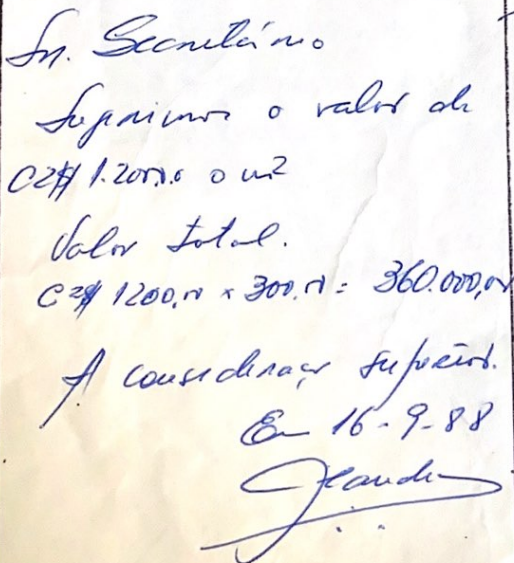 Sr. Secretário
Sugerimos o valor de
CZ$ 1.200,00 o m²
Valor total.
CZ$ 1200,00 x 300,00 = 360.000,00
A consideração superior.
Em 16-9-88